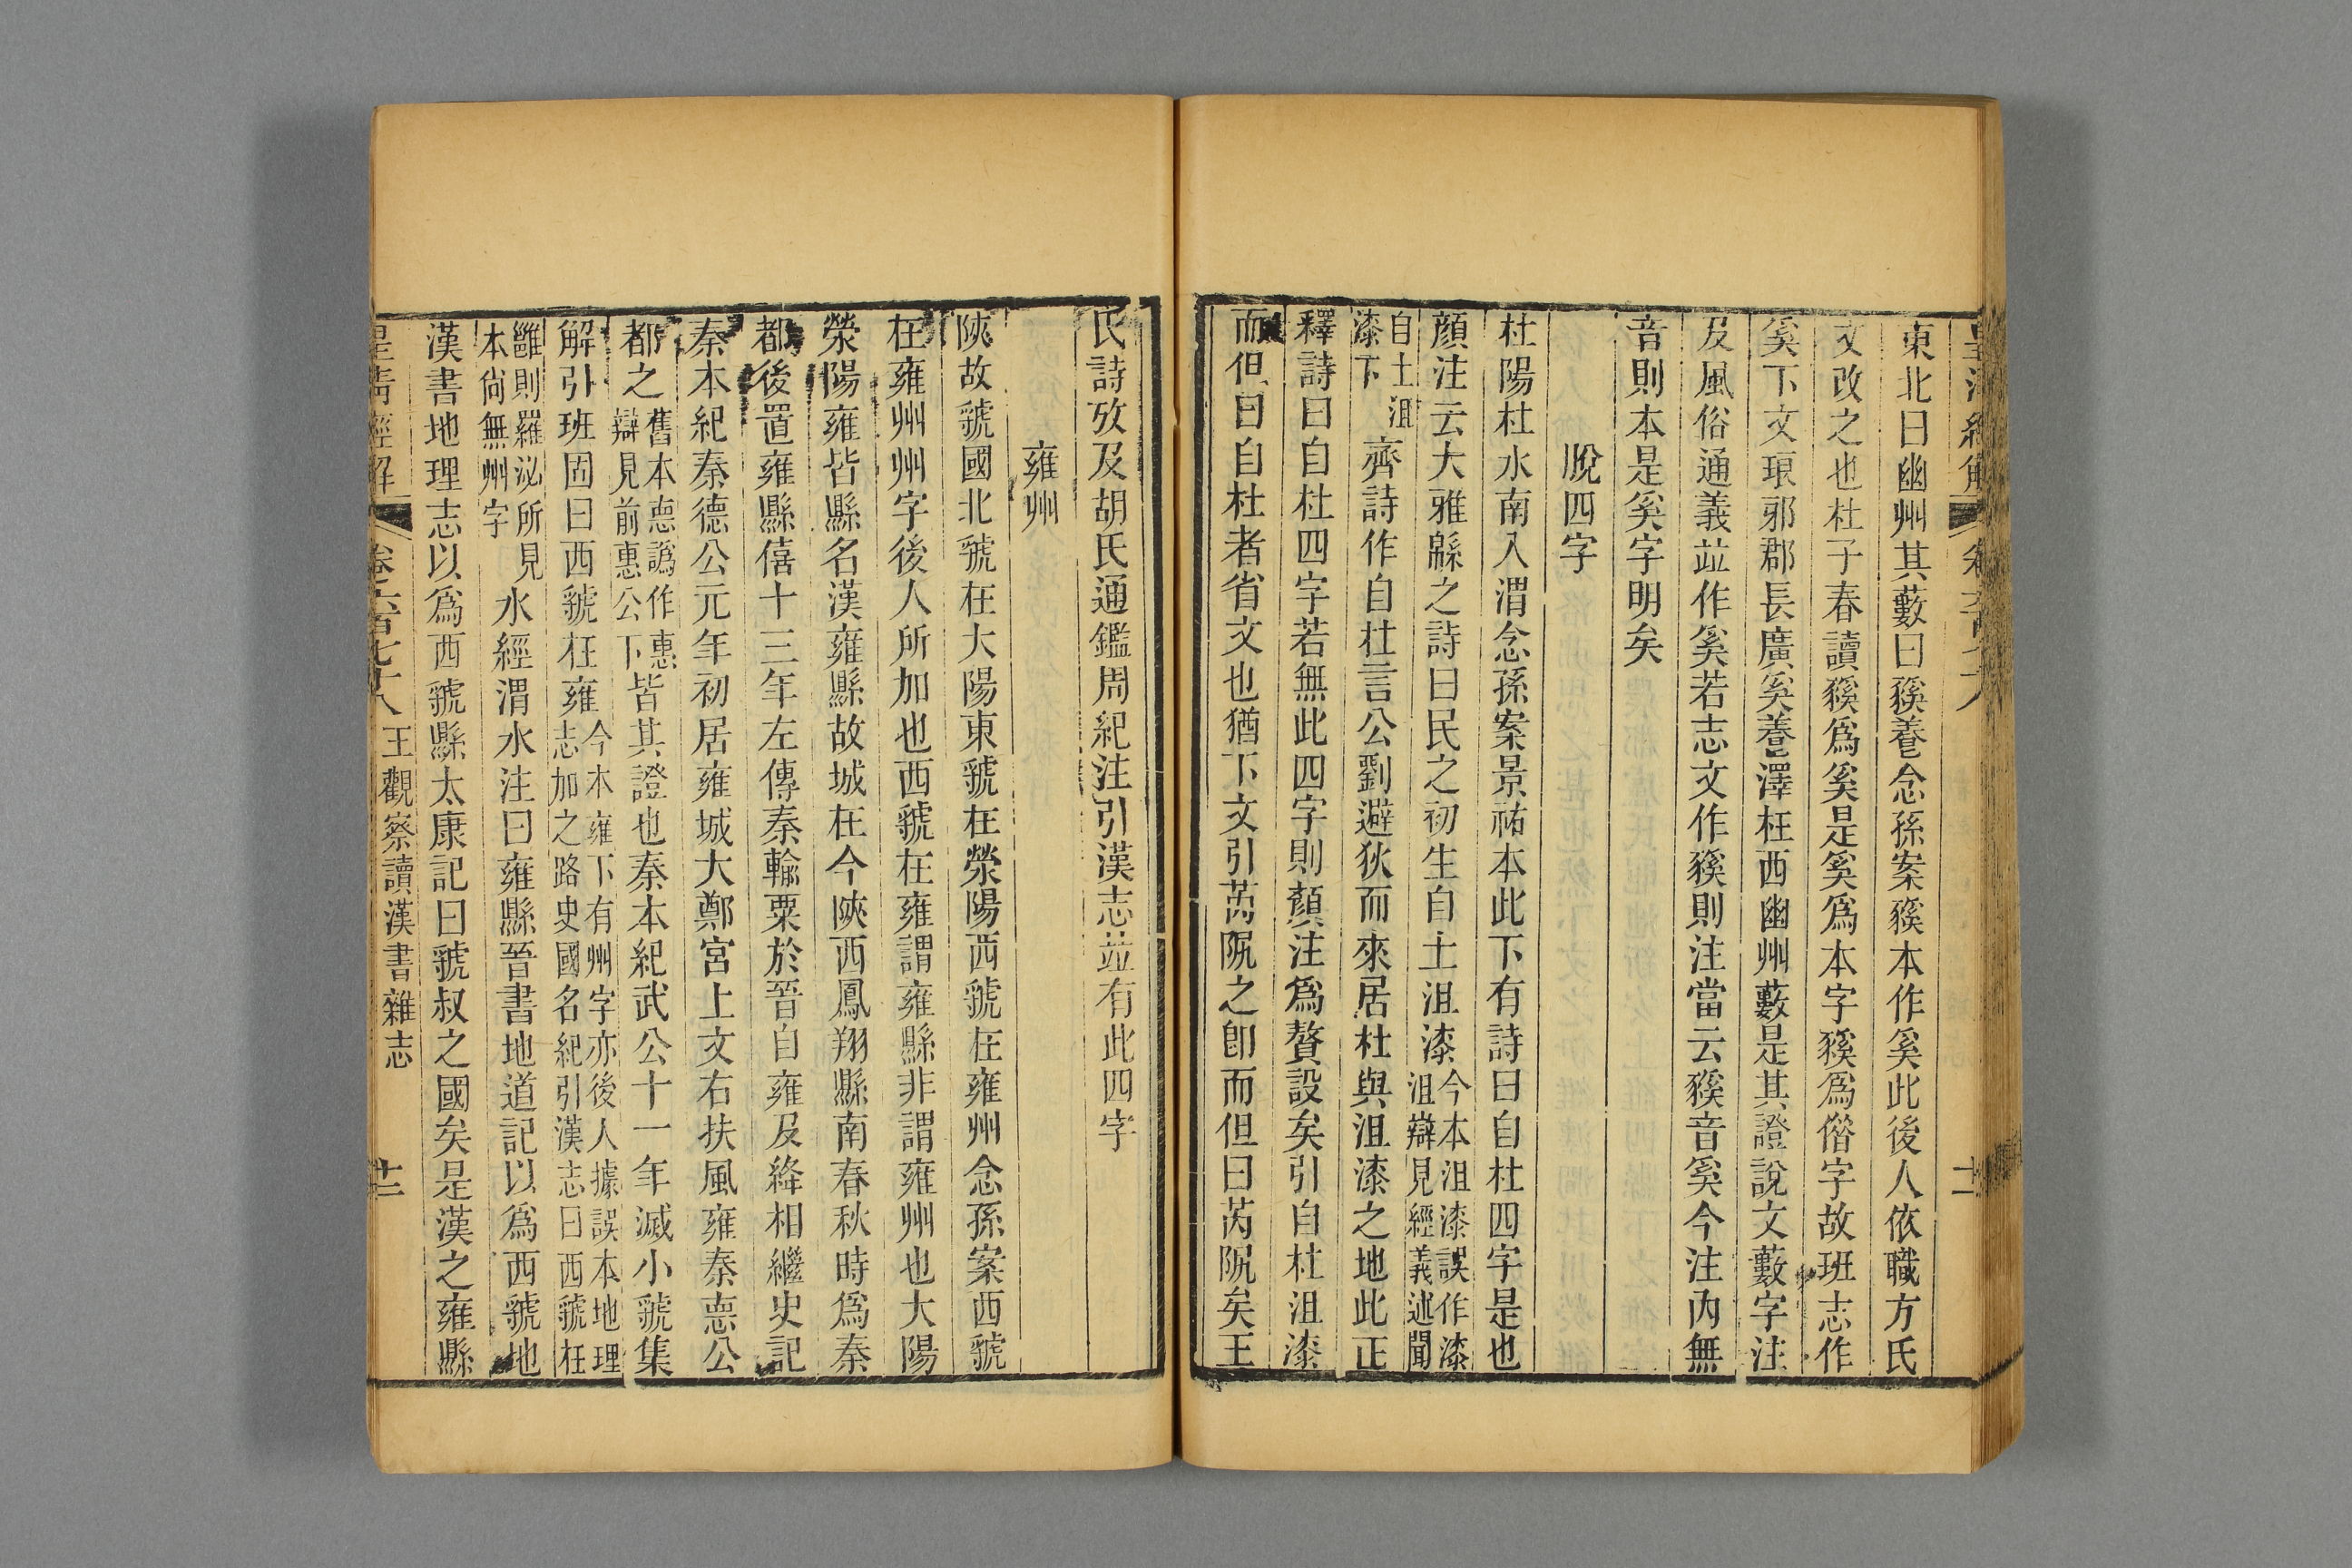 皇清經解 卷六百七十八 十一
東北曰幽州其藪曰豯養念孫案豯本作奚此後人依職方氏
文改之也杜子春讀豯爲奚是奚爲本字豯爲借字故班志作
奚下文琅邪郡長廣奚養澤在西幽州藪是其證說文藪字注
及風俗通義竝作奚若志文作豯則注當云豯音奚今注內無
音則本是奚字明矣
脫四字
杜陽杜水南入渭念孫案景祐本此下有詩曰自杜四字是也
顏注云大雅緜之詩曰民之初生自土沮漆今本沮漆誤作漆沮辯見經義述聞
自土沮漆下齊詩作自杜言公劉避狄而來居杜與沮漆之地此正
釋詩曰自杜四字若無此四字則顏注爲贅設矣引自杜沮漆
而但曰自杜者省文也猶下文引芮阮之卽而但曰芮阮矣王
氏詩攷及胡氏通鑑周紀注引漢志竝有此四字
雍州
陝故虢國北虢在大陽東虢在滎陽西虢在雍州念孫案西虢
在雍州州字後人所加也西虢在雍謂雍縣非謂雍州也大陽
滎陽雍皆縣名漢雍縣故城在今陝西鳳翔縣南春秋時爲秦
都後置雍縣僖十三年左傳秦輸粟於晉自雍及絳相繼史記
秦本紀秦德公元年初居雍城大鄭宮上文右扶風雍秦惪公
都之舊本惪譌作惠惠辯見前惠公下皆其證也秦本紀武公十一年滅小虢集
解引班固曰西虢在雍今本雍下有州字亦後人據誤本地理志加之路史國名紀引漢志曰西虢在
雝則羅泌所見本尙無州字水經渭水注曰雍縣晉書地道記以爲西虢地
漢書地理志以爲西虢縣太康記曰虢叔之國矣是漢之雍縣
皇清經解 卷六百七十八 王觀察讀漢書雜志 十二